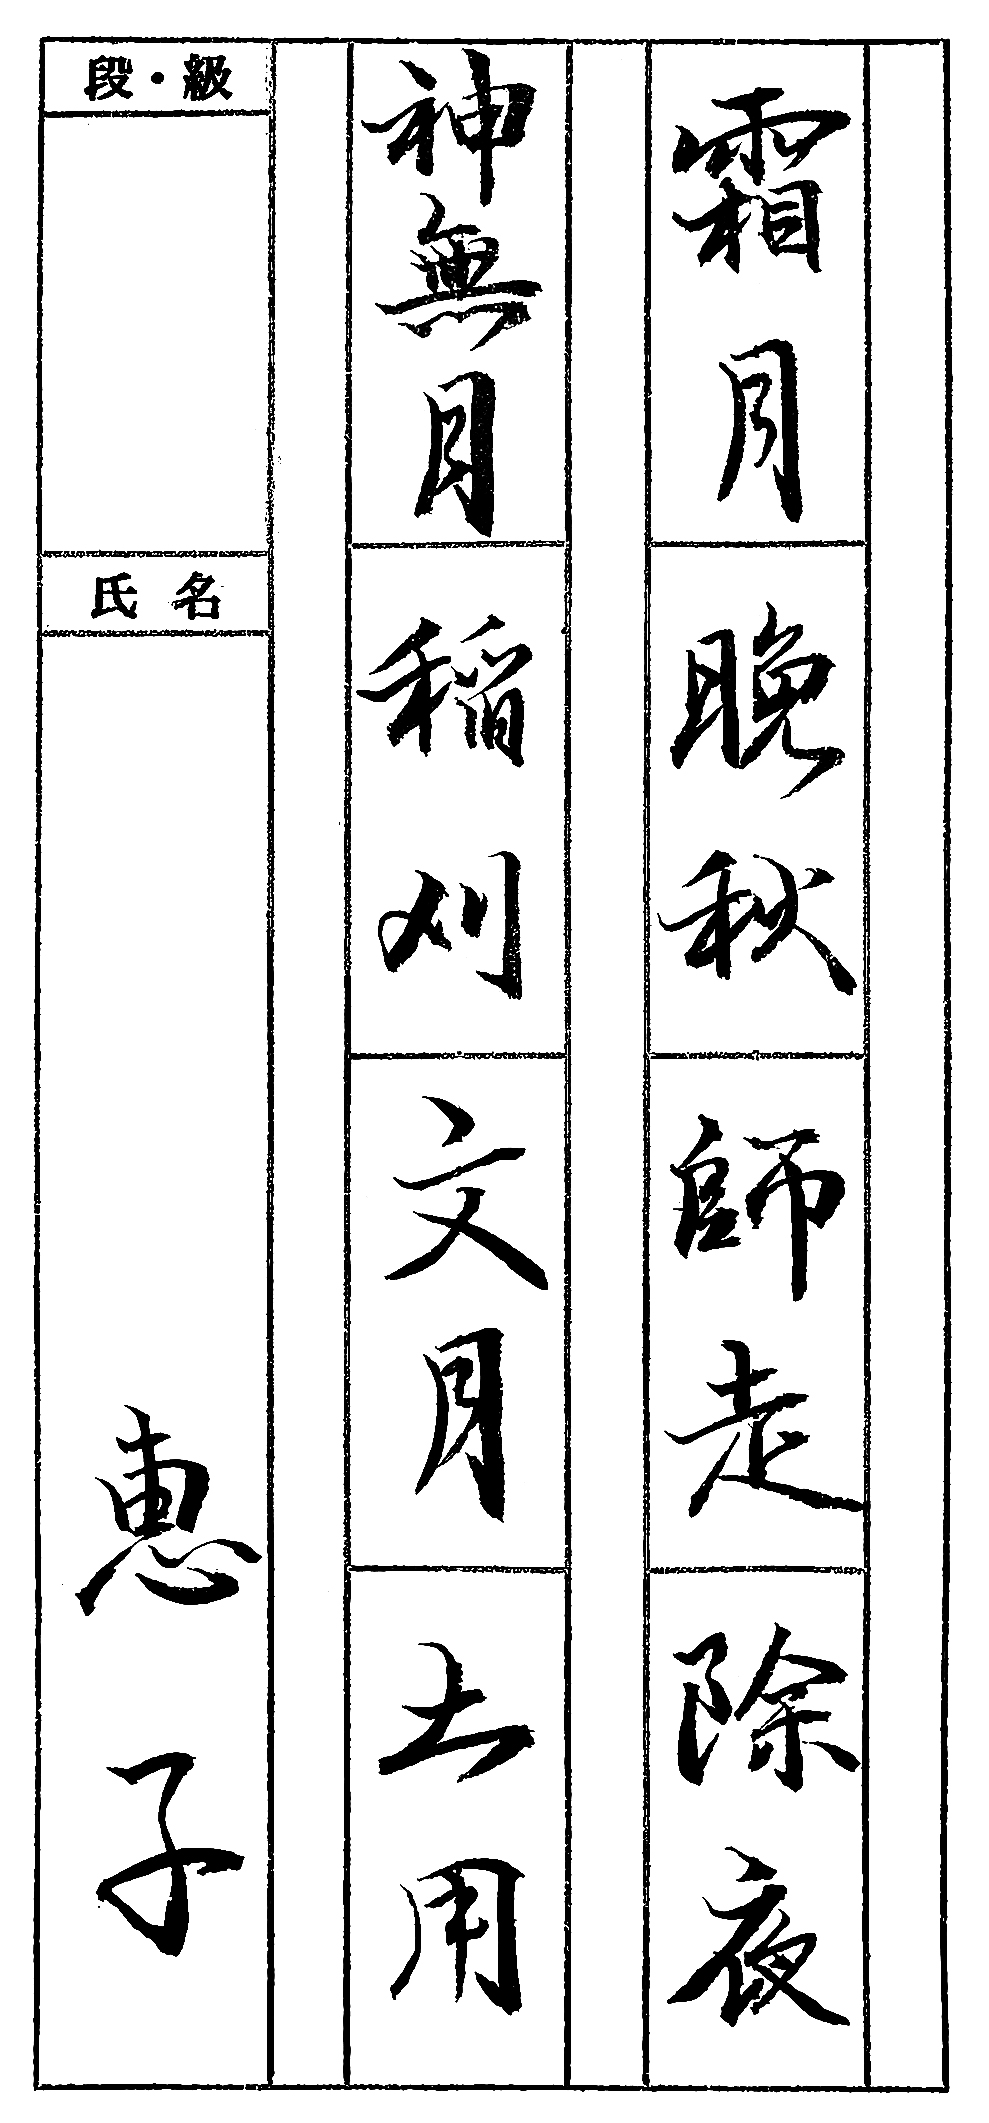 霜月
晩秋
師走
除夜
神無月
稲刈
文月
土用
段・級
氏名
恵子